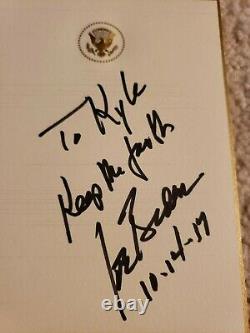 To Kyle
Keep the faith
Joe Biden
10-14-17